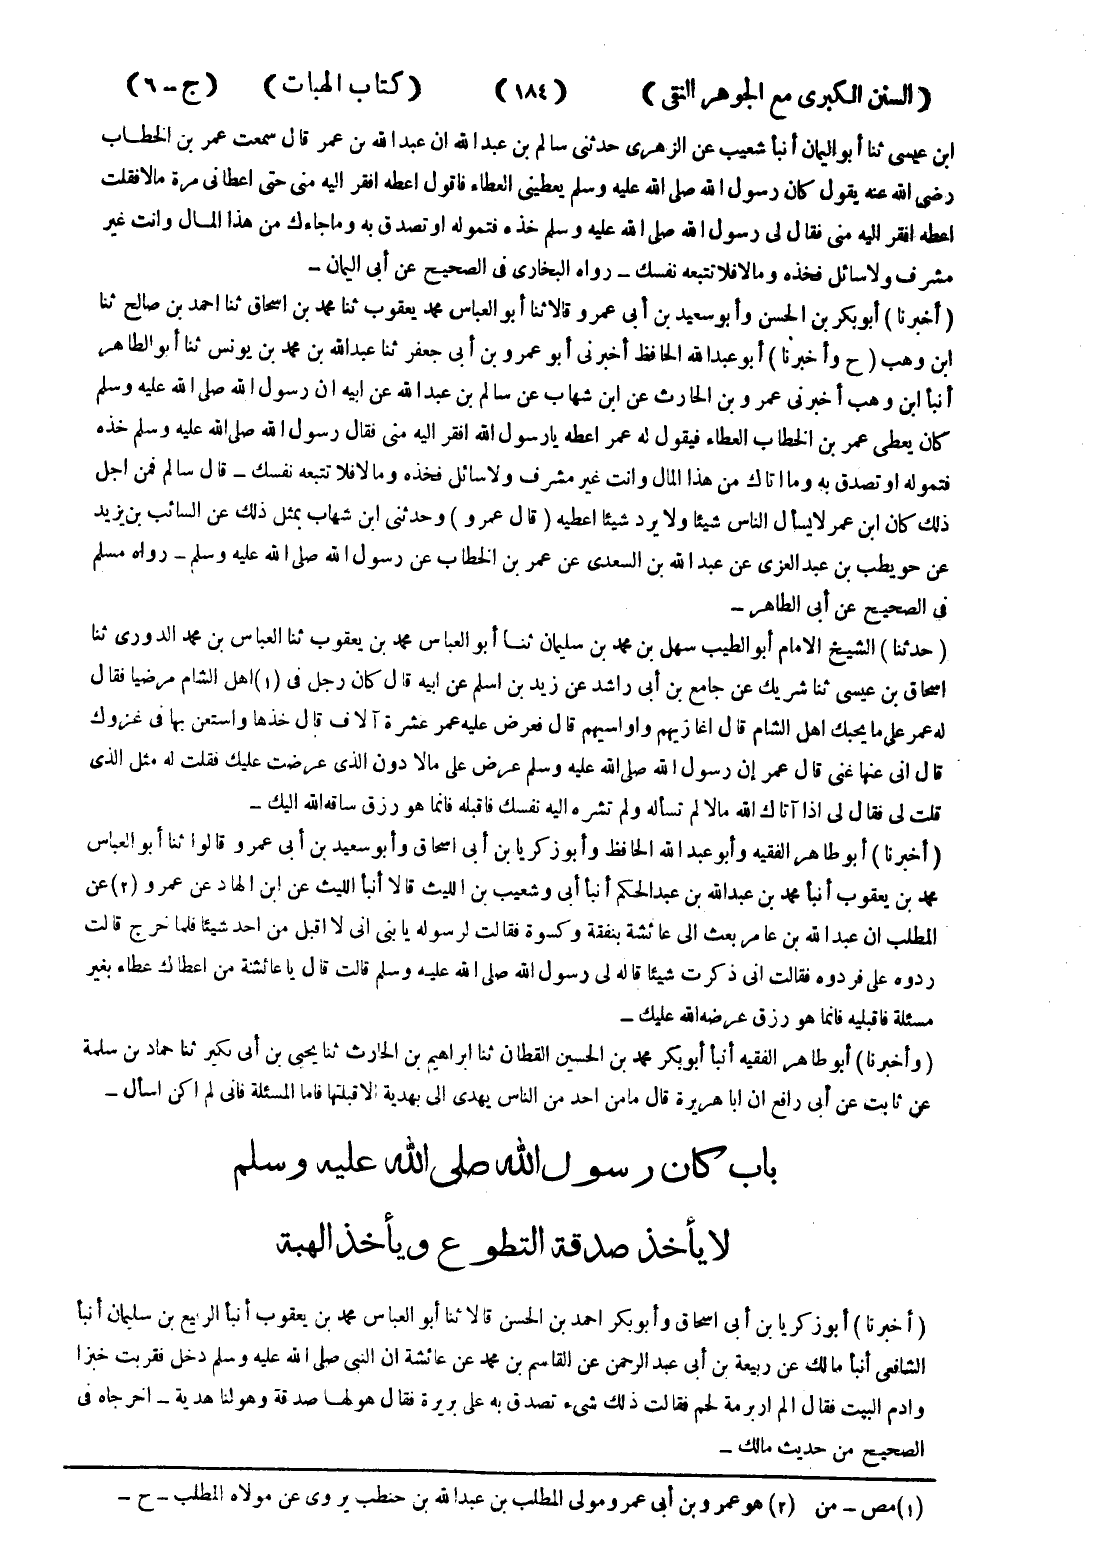 (السنن الكبرى مع الجوهر النقى) (١٨٤) (كتاب الهبات) (ج-٦)
ابن عيسى ثنا أبو اليمان أنبأ شعيب عن الزهرى حدثنى سالم بن عبد الله ان عبد الله بن عمر قال سمعت عمر بن الخطاب
رضى الله عنه يقول كان رسول الله صلى الله عليه وسلم يعطينى العطاء فاقول اعطه افقر اليه منى حتى اعطانى مرة مالا فقلت
اعطه افقر اليه منى فقال لى رسول الله صلى الله عليه وسلم خذه فتموله او تصدق به وماجاءك من هذا المال وانت غير
مشرف ولا سائل فخذه ومالا فلا تتبعه نفسك - رواه البخارى فى الصحيح عن أبى اليمان -
(أخبرنا) أبو بكر بن الحسن وأبو سعيد بن أبى عمرو قالا ثنا أبو العباس محمد يعقوب ثنا محمد بن اسحاق ثنا احمد بن صالح ثنا
ابن وهب (ح وأخبرنا) أبو عبد الله الحافظ أخبرنى أبو عمرو بن أبى جعفر ثنا عبد الله بن محمد بن يونس ثنا أبو الطاهر
أنبأ ابن وهب أخبرنى عمرو بن الحارث عن ابن شهاب عن سالم بن عبد الله عن ابيه ان رسول الله صلى الله عليه وسلم
كان يعطى عمر بن الخطاب العطاء فيقول له عمر اعطه يارسول الله افقر اليه منى فقال رسول الله صلى الله عليه وسلم خذه
فتموله او تصدق به وما اتاك من هذا المال وانت غير مشرف ولا سائل فخذه ومالا فلا تتبعه نفسك - قال سالم فمن اجل
ذلك كان ابن عمر لايسأل الناس شيئا ولا يرد شيئا اعطيه (قال عمرو) وحدثنى ابن شهاب بمثل ذلك عن السائب بن يزيد
عن حويطب بن عبد العزى عن عبد الله بن السعدى عن عمر بن الخطاب عن رسول الله صلى الله عليه وسلم - رواه مسلم
فى الصحيح عن أبى الطاهر -
(حدثنا) الشيخ الامام أبو الطيب سهل بن محمد بن سليمان ثنا أبو العباس محمد بن يعقوب ثنا العباس بن محمد الدورى ثنا
اسحاق بن عيسى ثنا شريك عن جامع بن أبى راشد عن زيد بن اسلم عن ابيه قال كان رجل فى (١) اهل الشام مرضيا فقال
له عمر على ما يحبك اهل الشام قال اغازيهم واواسيهم قال فعرض عليه عمر عشرة آلاف قال خذها واستعن بها فى غزوك
قال انى عنها غنى قال عمر إن رسول الله صلى الله عليه وسلم عرض على مالا دون الذى عرضت عليك فقلت له مثل الذى
قلت لى فقال لى اذا آتاك الله مالا لم تسأله ولم تشره اليه نفسك فاقبله فانما هو رزق ساقه الله اليك -
(أخبرنا) أبو طاهر الفقيه وأبو عبد الله الحافظ وأبو زكريا بن أبى اسحاق وأبو سعيد بن أبى عمرو قالوا ثنا أبو العباس
محمد بن يعقوب أنبأ محمد بن عبد الله بن عبد الحكم أنبأ أبى وشعيب بن الليث قالا أنبأ الليث عن ابن الهاد عن عمرو (٢) عن
المطلب ان عبد الله بن عامر بعث الى عائشة بنفقة وكسوة فقالت لرسوله يا بنى انى لا اقبل من احد شيئا فلما خرج قالت
ردوه على فردوه فقالت انى ذكرت شيئا قاله لى رسول الله صلى الله عليه وسلم قالت قال يا عائشة من اعطاك عطاء بغير
مسئلة فاقبليه فانما هو رزق عرضه الله عليك -
(وأخبرنا) أبو طاهر الفقيه أنبأ أبو بكر محمد بن الحسين القطان ثنا ابراهيم بن الحارث ثنا يحيى بن أبى بكير ثنا حماد بن سلمة
عن ثابت عن أبى رافع ان ابا هريرة قال مامن احد من الناس يهدى الى بهدية الا قبلتها فاما المسئلة فانى لم اكن اسأل -
باب كان رسول الله صلى الله عليه وسلم
لا يأخذ صدقة التطوع ويأخذ الهبة
(أخبرنا) أبو زكريا بن أبى اسحاق وأبو بكر احمد بن الحسن قالا ثنا أبو العباس محمد بن يعقوب أنبأ الربيع بن سليمان أنبأ
الشافعى أنبأ مالك عن ربيعة بن أبى عبد الرحمن عن القاسم بن محمد عن عائشة ان النبى صلى الله عليه وسلم دخل فقربت خبزا
وادم البيت فقال الم ار برمة لحم فقالت ذلك شىء تصدق به على بريرة فقال هو لها صدقة وهو لنا هدية - اخرجاه فى
الصحيح من حديث مالك -
(١) مص - من (٢) هو عمرو بن أبى عمرو مولى المطلب بن عبد الله بن حنطب يروى عن مولاه المطلب - ح -